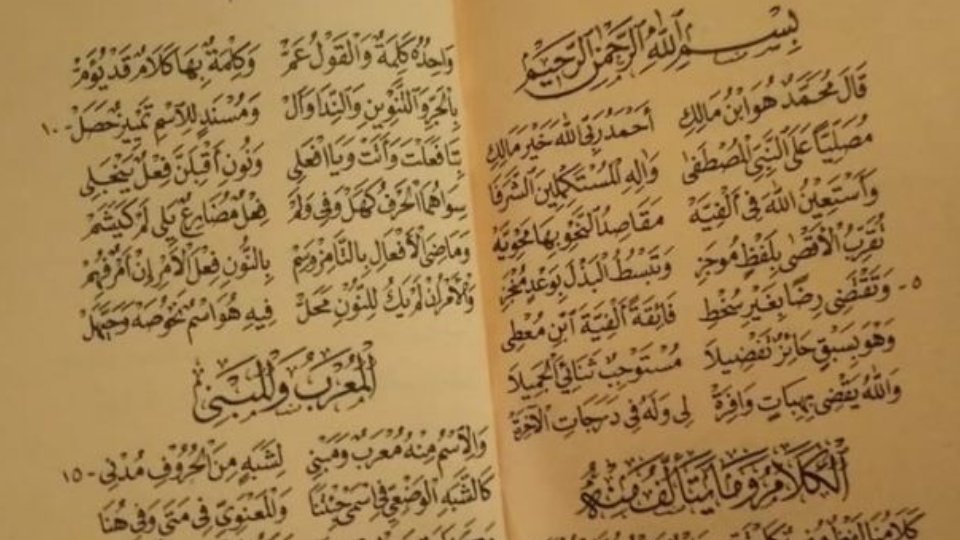 بِسْمِ ٱللهِ ٱلرَّحْمٰنِ ٱلرَّحِيمِ
قَالَ مُحَمَّدٌ هُوَ ابْنُ مَالِكِ أَحْمَدُ رَبِّي اللهَ خَيْرَ مَالِكِ
مُصَلِّيًا عَلَى النَّبِيِّ الْمُصْطَفَى وَآلِهِ الْمُسْتَكْمِلِينَ الشَّرَفَا
وَأَسْتَعِينُ اللهَ فِي أَلْفِيَّهْ مَقَاصِدُ النَّحْوِ بِهَا مَحْوِيَّهْ
تُقَرِّبُ الْأَقْصَى بِلَفْظٍ مُوجَزِ وَتَبْسُطُ الْبَذْلَ بِوَعْدٍ مُنْجَزِ
٥ - وَتَقْتَضِي رِضًا بِغَيْرِ سُخْطِ فَائِقَةً أَلْفِيَّةَ ابْنِ مُعْطِي
وَهْوَ بِسَبْقٍ حَائِزٌ تَفْضِيلَا مُسْتَوْجِبٌ ثَنَائِيَ الْجَمِيلَا
وَاللهُ يَقْضِي بِهِبَاتٍ وَافِرَهْ لِي وَلَهُ فِي دَرَجَاتِ الْآخِرَهْ
الْكَلَامُ وَمَا يَتَأَلَّفُ مِنْهُ
كَلَامُنَا لَفْظٌ مُفِيدٌ
وَاحِدُهُ كَلِمَةٌ وَالْقَوْلُ عَمّْ وَكِلْمَةٌ بِهَا كَلَامٌ قَدْ يُؤَمّْ
بِالْجَرِّ وَالتَّنْوِينِ وَالنِّدَا وَأَلْ وَمُسْنَدٍ لِلْاِسْمِ تَمْيِيزٌ حَصَلْ - ١٠
بِتَا فَعَلْتَ وَأَتَتْ وَيَا افْعَلِي وَنُونِ أَقْبِلَنَّ فِعْلٌ يَنْجَلِي
سِوَاهُمَا الْحَرْفُ كَهَلْ وَفِي وَلَمْ فِعْلٌ مُضَارِعٌ يَلِي لَمْ كَيَشَمْ
وَمَاضِيَ الْأَفْعَالِ بِالتَّا مِزْ وَسِمْ بِالنُّونِ فِعْلَ الْأَمْرِ إِنْ أَمْرٌ فُهِمْ
وَالْأَمْرُ إِنْ لَمْ يَكُ لِلنُّونِ مَحَلّْ فِيهِ هُوَ اسْمٌ نَحْوُ صَهْ وَحَيَّهَلْ
الْمُعْرَبُ وَالْمَبْنِي
وَالْاِسْمُ مِنْهُ مُعْرَبٌ وَمَبْنِي لِشَبَهٍ مِنَ الْحُرُوفِ مُدْنِي - ١٥
كَالشَّبَهِ الْوَضْعِيِّ فِي اسْمَيْ جِئْتَنَا وَالْمَعْنَوِيِّ فِي مَتَى وَفِي هُنَا